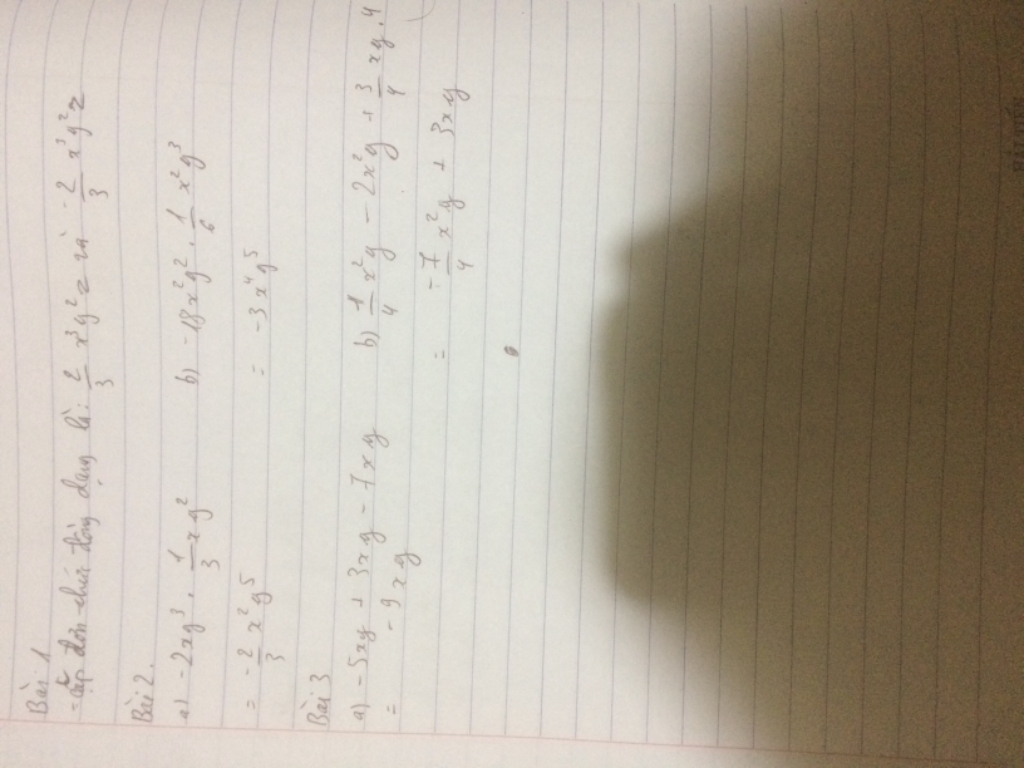 Bài 1
- Cặp đơn thức đồng dạng là: 2/3 x³y²z và -2/3 x³y²z
Bài 2.
a) -2xy³ . 1/3 xy² b) -18x²y² . 1/6 x²y³
= -2/3 x²y⁵ = -3x⁴y⁵
Bài 3
a) -5xy + 3xy - 7xy b) 1/4 x²y - 2x²y + 3/4 xy . 4
= -9xy = -7/4 x²y + 3xy